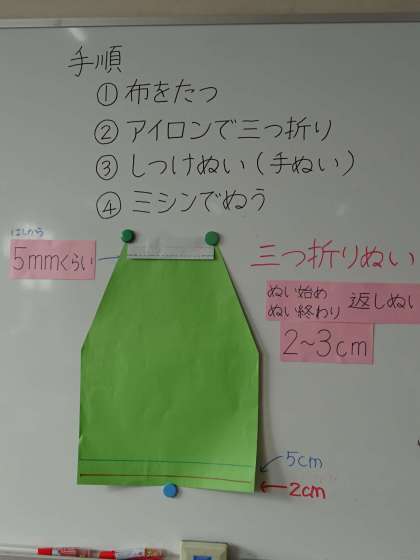 手順
① 布をたつ
② アイロンで三つ折り
③ しつけぬい(手ぬい)
④ ミシンでぬう
はしから
5mmくらい
三つ折りぬい
ぬい始め
ぬい終わり
返しぬい
2~3cm
5cm
2cm